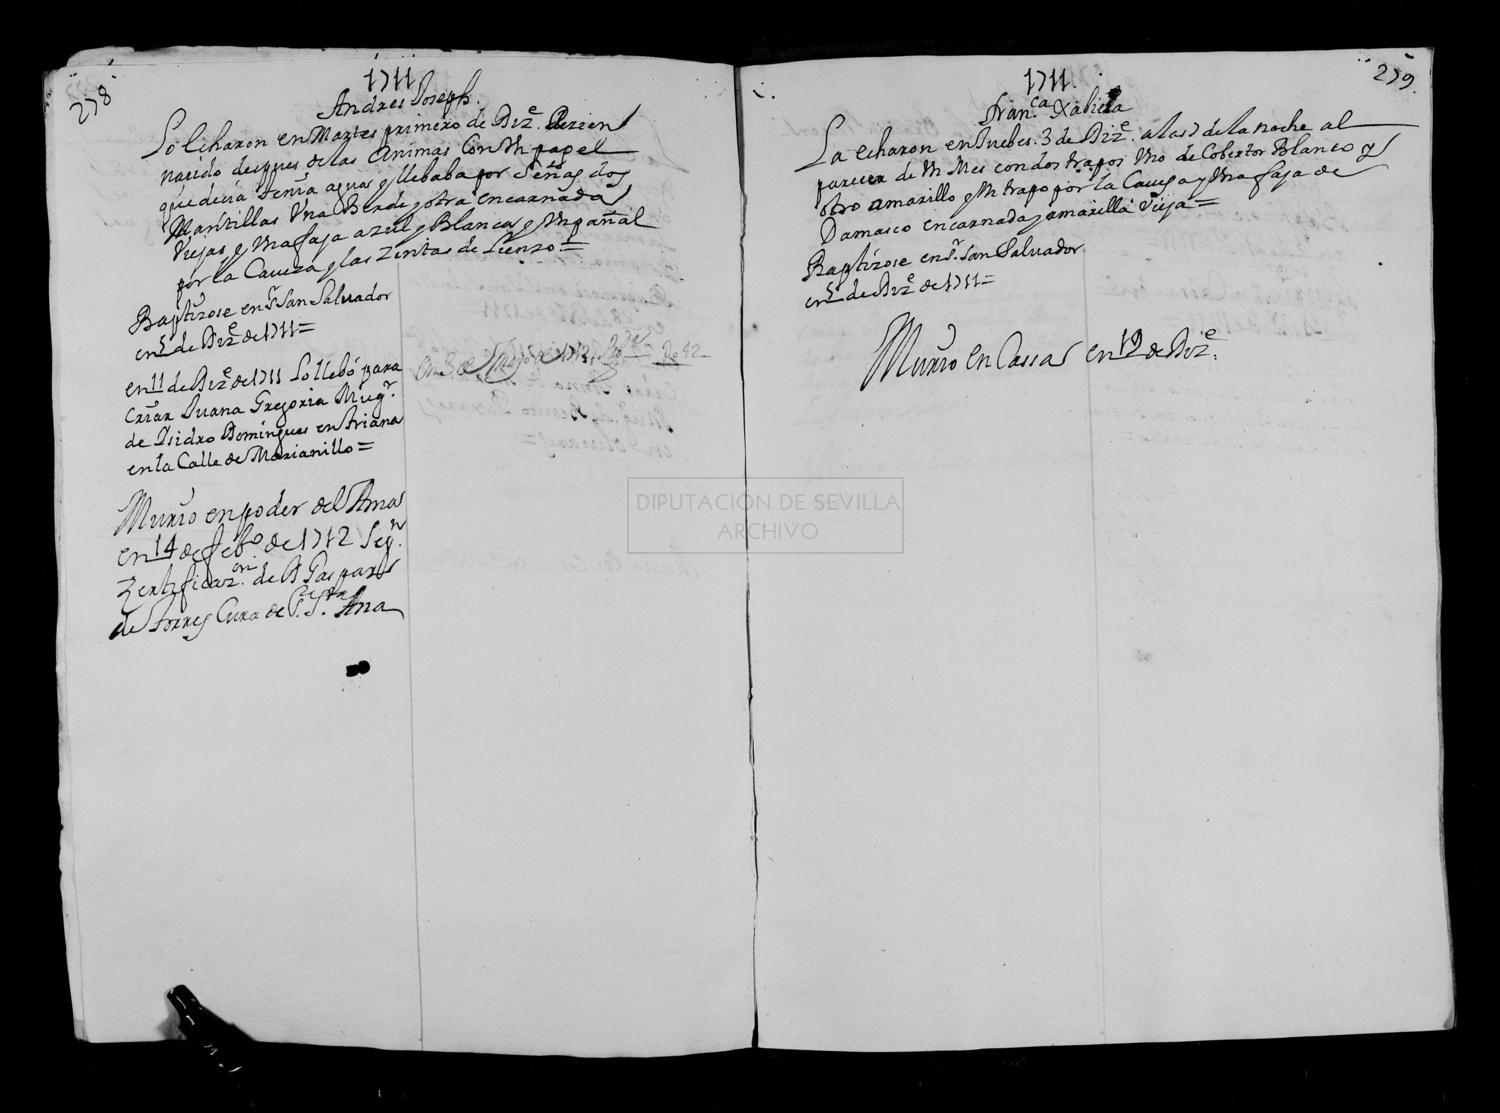 278
1711
Andres Joseph.
Lo Echaron en Martes primero de Diz.e Rezien
nazido despues de las Animas Con Vn papel
que dezia tenia aguas y llebaba por Señas dos
Mantillas Vna Berde y otra encarnada
Viejas y Vna faja azul y Blanca y Vn pañal
por la Caveza y las Zintas de Lienzo =
Baptizose en Sr. San Saluador
en 5 de Diz.e de 1711 =
en 11 de Diz.e de 1711 Lo llebó para
Criar Juana Gregoria Mug.r
de Isidro Domingues en triana
en la Calle de Marianillo =
en 3 de Mayo de 1712
Do 42
Murio en poder del Ama
en 14 de feb.o de 1712 Seg.n
Zertificaz.on de D Gaspar
de torres Cura de Sta. Ana
279
1711
Fran.ca Xabiela
La echaron en Juebes. 3 de Diz.e a las 7 de la noche al
parezer de Vn Mes con dos trapos Vno de Cobertor Blanco y
otro amarillo y Vn trapo por la Caveza y Vna faja de
Damasco encarnada y amarilla Vieja =
Baptizose en Sr. San Saluador
en 5 de Diz.e de 1711 =
Murio en Cassa en 19 de Diz.e
DIPUTACIÓN DE SEVILLA
ARCHIVO